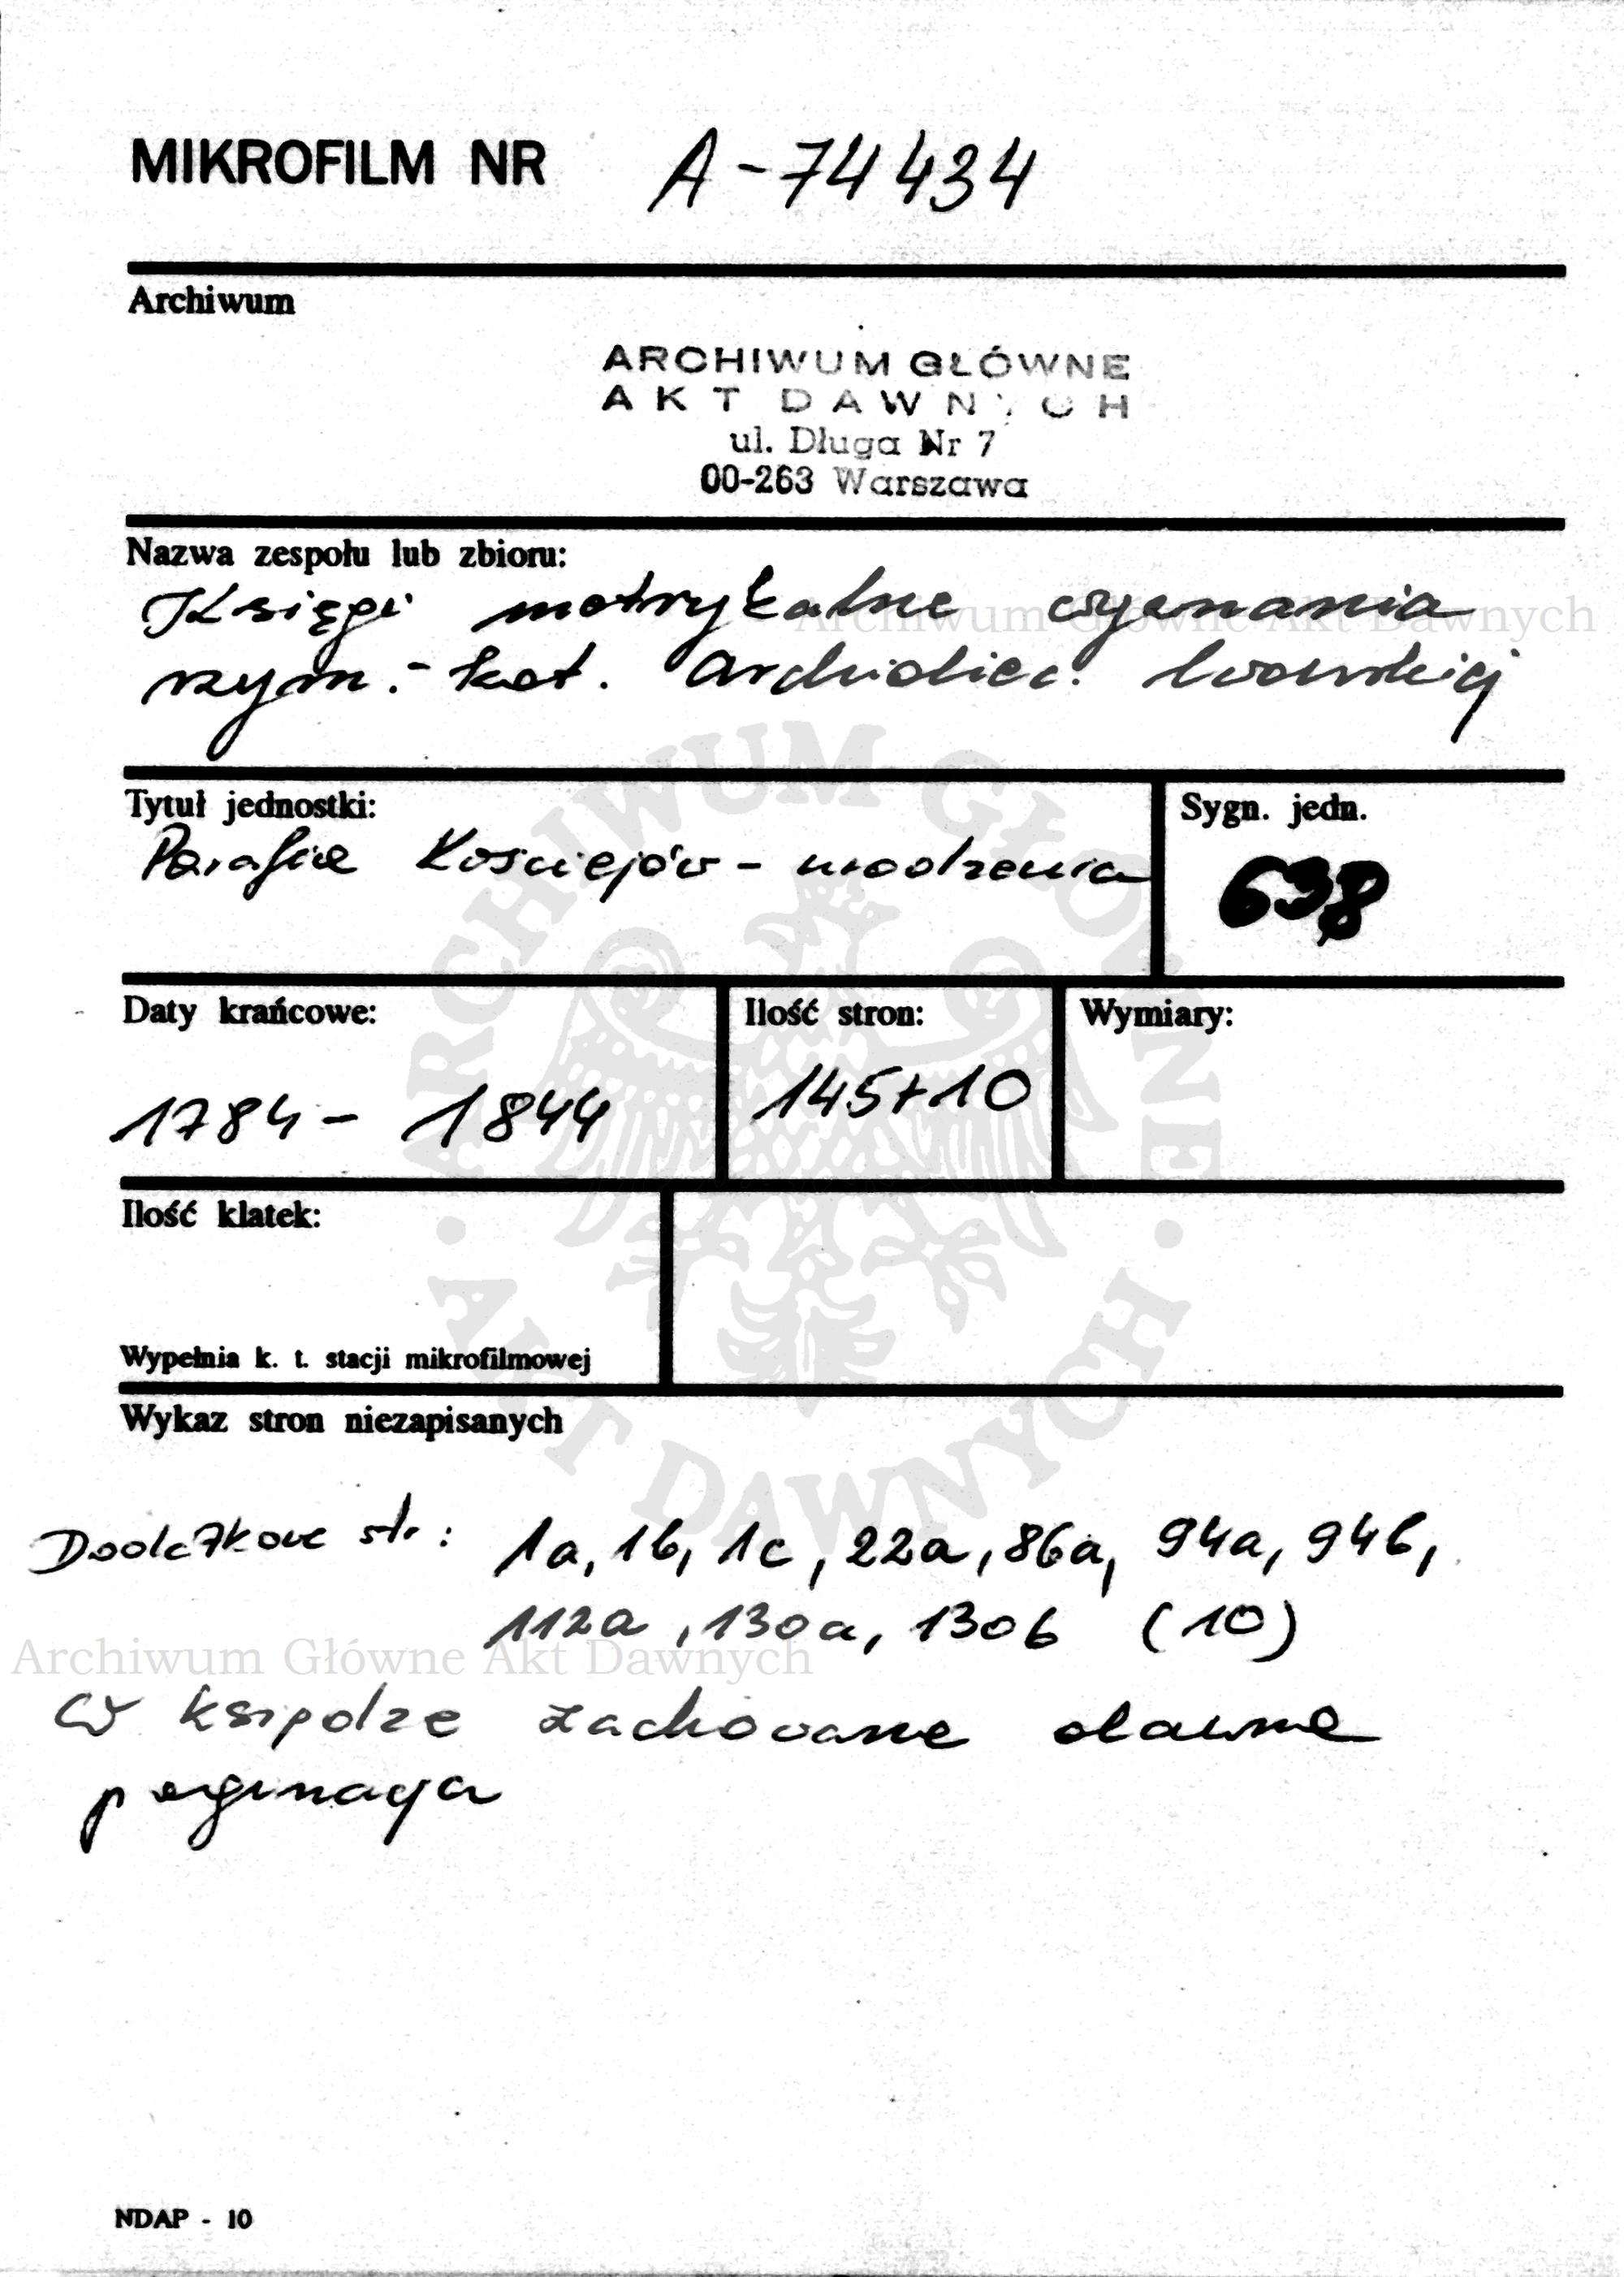 MIKROFILM NR A-74434
Archiwum
ARCHIWUM GŁÓWNE
AKT DAWNYCH
ul. Długa Nr 7
00-263 Warszawa
Nazwa zespołu lub zbioru:
Księgi metrykalne wyznania
rzym.-kat. Archidiec. lwowskiej
Archiwum Główne Akt Dawnych
Tytuł jednostki:
Parafia Kościejów - urodzenia
Sygn. jedn.
638
Daty krańcowe:
1784 - 1844
Ilość stron:
145+10
Wymiary:
Ilość klatek:
Wypełnia k. t. stacji mikrofilmowej
Wykaz stron niezapisanych
Dodatkowe str.: 1a, 1b, 1c, 22a, 86a, 94a, 94b,
112a, 130a, 130b (10)
Archiwum Główne Akt Dawnych
W księdze zachowane dawne
paginacja
NDAP - 10
ARCHIWUM GŁÓWNE · AKT DAWNYCH ·